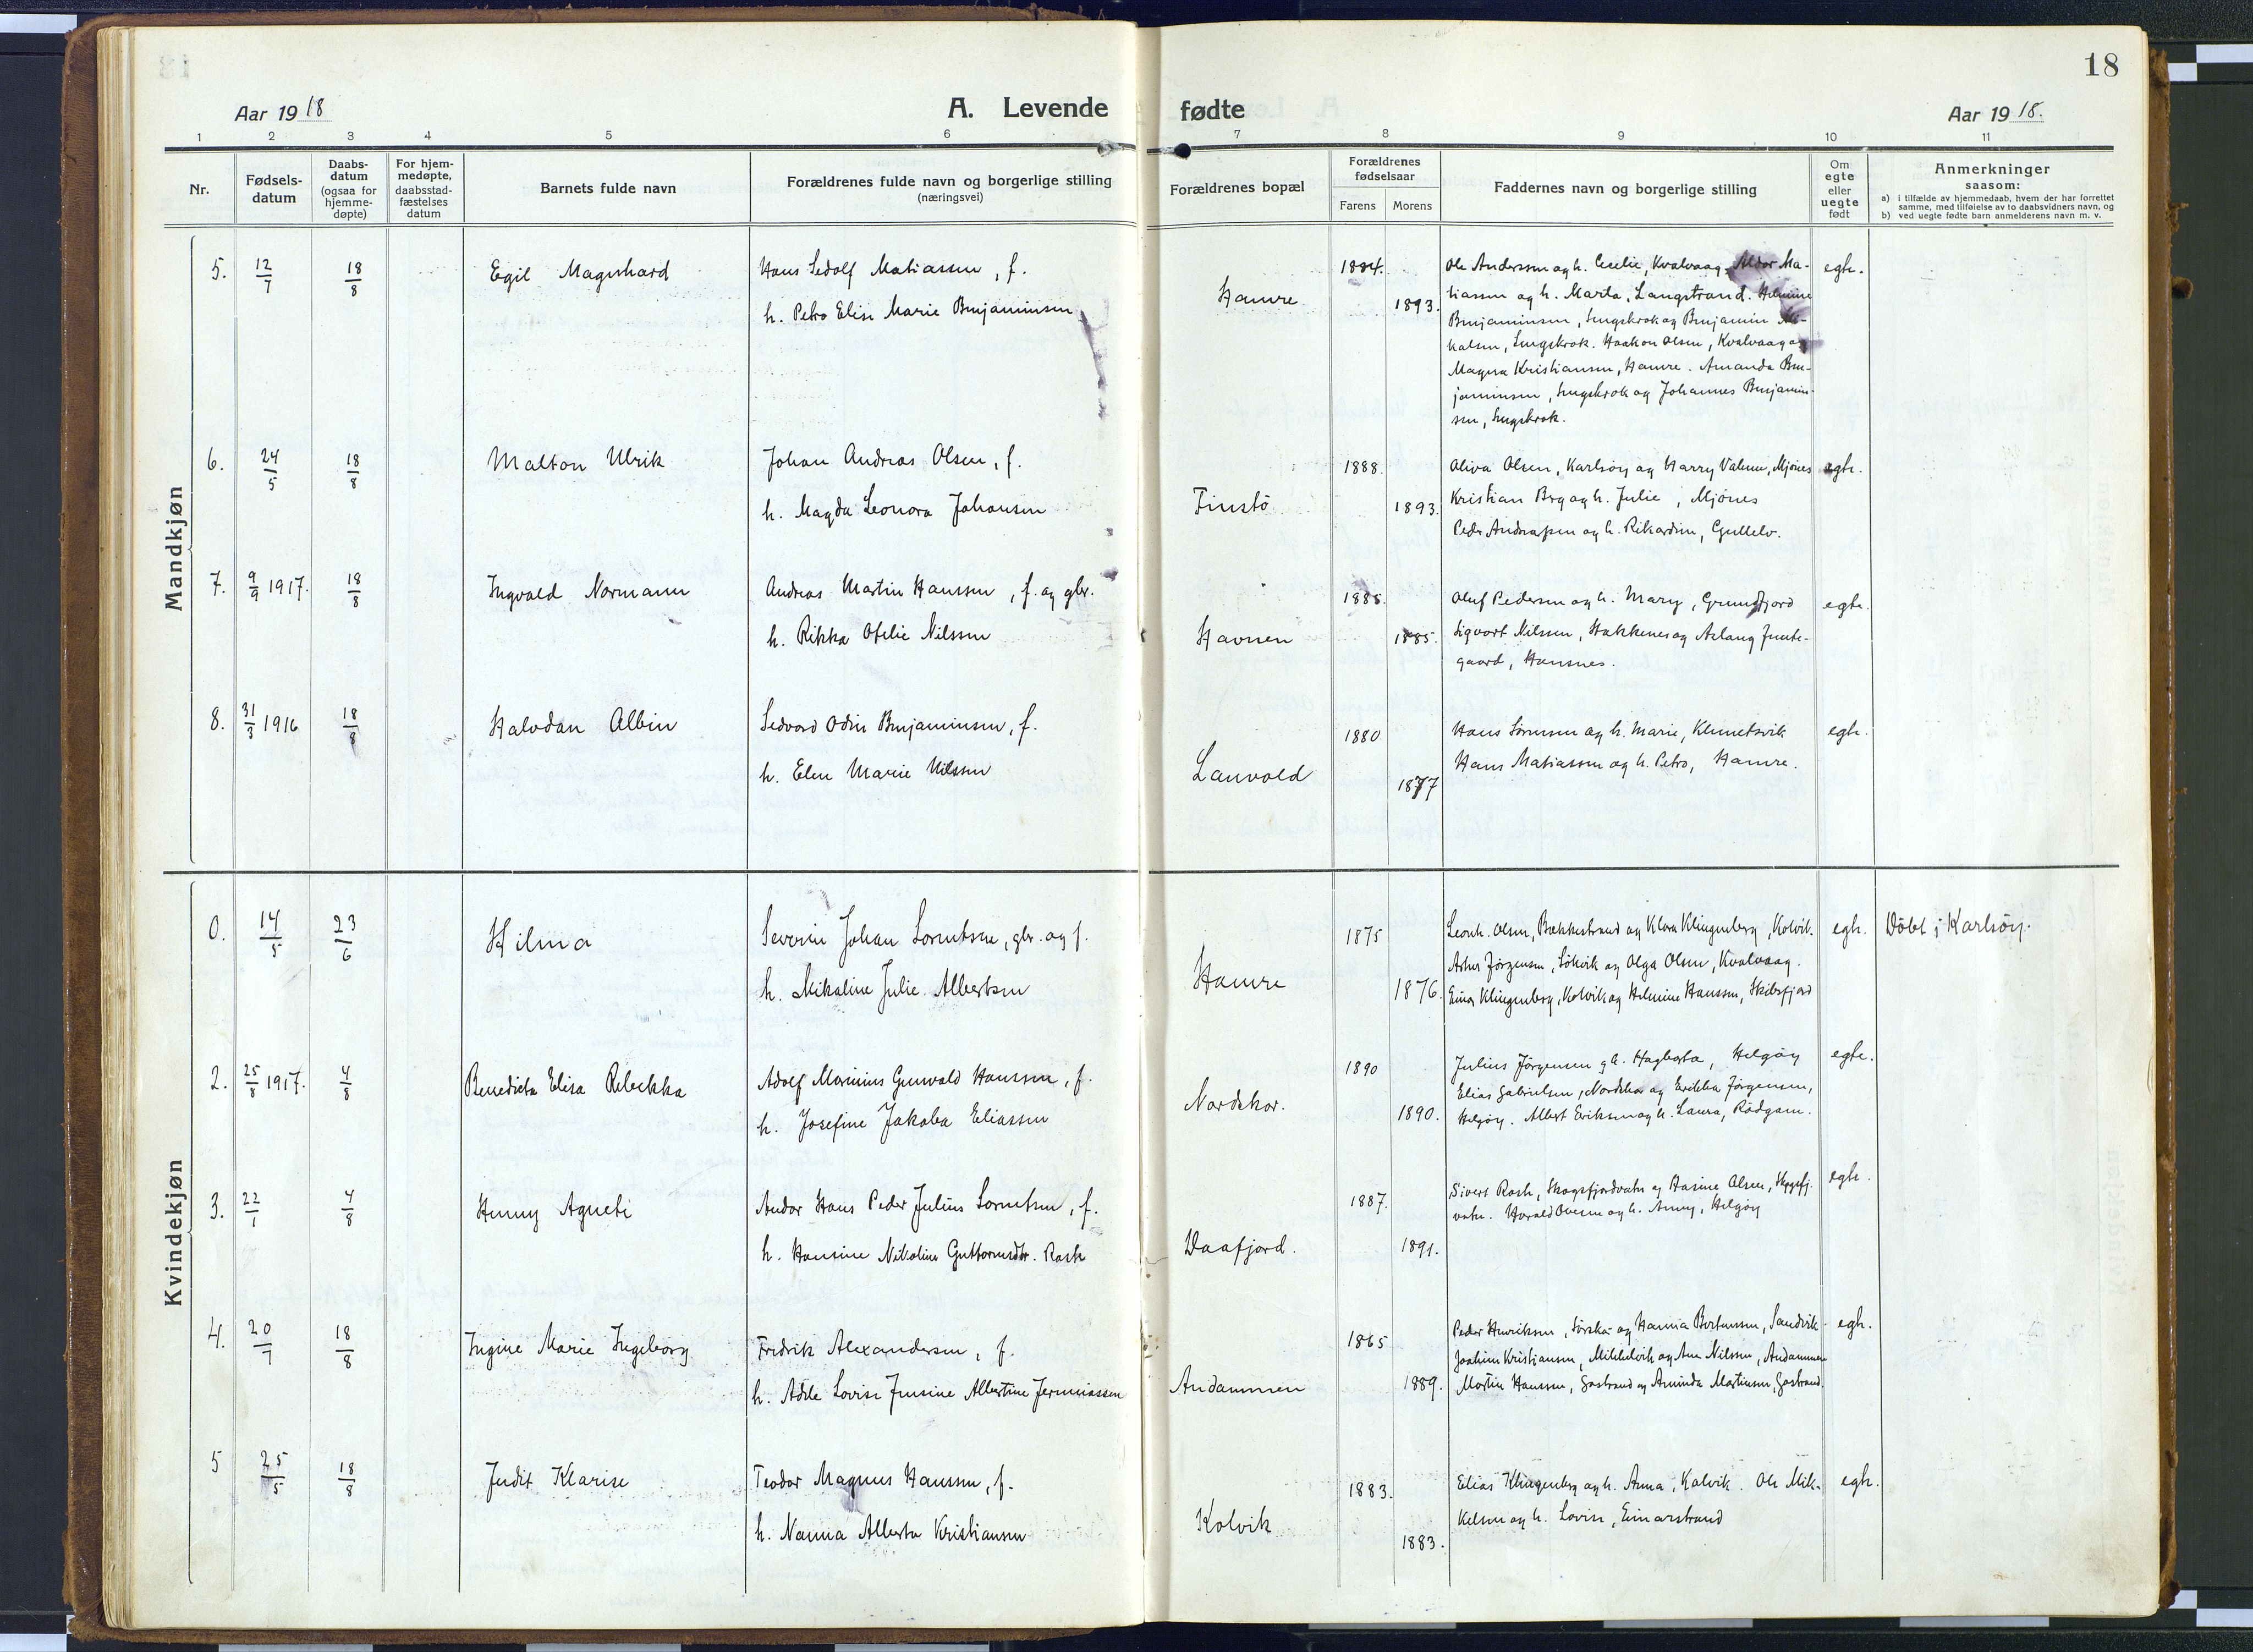 18
Aar 1918
A. Levende fødte
Aar 1918.
1 2 3 4 5 6 7 8 9 10 11
Nr.
Fødsels-
datum
Daabs-
datum
(ogsaa for
hjemme-
døpte)
For hjem-
medøpte,
daabsstad-
fæstelses
datum
Barnets fulde navn
Forældrenes fulde navn og borgerlige stilling
(næringsvei)
Forældrenes bopæl
Forældrenes
fødselsaar
Farens Morens
Faddernes navn og borgerlige stilling
Om
egte
eller
uegte
født
Anmerkninger
saasom:
a) i tilfælde av hjemmedaab, hvem der har forrettet
samme, med tilføielse av to daabsvidners navn, og
b) ved uegte fødte barn anmelderens navn m. v.
Mandkjøn
5. 12/7 18/8 Egil Magnhard
Hans Sedolf Matiassen, f.
h. Petra Elise Marie Benjaminsen
Hamre
1884.
1893.
Ole Anderssen og h. Cecilie, Kvalvaag. Aldor Ma-
tiassen og h. Marta, Langstrand. Helmine
Benjaminsen, Lugskrok og Benjamin Mi-
kalsen, Lugskrok. Haakon Olsen, Kvalvaag og
Magna Kristiansen, Hamre. Amanda Ben-
jaminsen, Lugskrok og Johannes Benjamin-
sen, Lugskrok.
egte.
6. 24/5 18/8 Malton Ulrik
Johan Andreas Olsen, f.
h. Magda Leonora Johansen
Finstö
1888.
1893.
Oliva Olsen, Karlsöy og Harry Valum, Mjönes
Kristian Berg og h. Julie, Mjönes
Peder Andreassen og h. Rikardine, Gullelv.
egte.
7. 9/9 1917. 18/8 Ingvald Normann
Andreas Martin Hanssen, f. og gbr.
h. Rikka Ofelie Nilssen
Havnen
1885.
1885.
Oluf Pedersen og h. Mary, Grunnfjord
Sigvart Nilssen, Stakkenes og Aslaug
gaard, Hansnes.
egte.
8. 31/3 1916 18/8 Halvdan Albin
Sedvard Odin Benjaminsen, f.
h. Elen Marie Nilssen
Lanvold
1880
1877
Hans Sörensen og h. Marie, Klemetsvik
Hans Matiassen og h. Petra, Hamre.
egte.
Kvindekjøn
0. 14/5 23/6 Hilma
Severin Johan Lorentsen, gbr. og f.
h. Mikaline Julie Albertsen
Hamre
1875
1876.
Leonh. Olsen, Bakkestrand og Klara Klingenberg, Kolvik.
Asher Jörgensen, Sökvik og Olga Olsen, Kvalvaag.
Einar Klingenberg, Kolvik og Helmine Hanssen, Skibsfjord
egte.
Döbt i Karlsöy.
2. 25/8 1917. 4/8 Benedicta Elisa Rebekka
Adolf Marinius Grunvald Hanssen, f.
h. Josefine Jakoba Eliassen
Nordskar.
1890
1890.
Julius Jörgensen og h. Hagberta, Helgöy
Elias Gabrielsen, Nordskar og Erikka Jörgensen,
Helgöy. Albert Eriksen og h. Laura, Rödgam.
egte.
3. 22/1 4/8 Henny Agneti
Andor Hans Peder Julius Lorentsen, f.
h. Hansine Nikoline Guttormsdtr. Rask
Daafjord.
1887.
1891.
Sivert Rask, Skogsfjordvatn og Hasine Olsen, Skogsfj.
vatn. Harald Ovesen og h. Anny, Helgöy
egte.
4. 20/7 18/8 Ingine Marie Ingeborg
Fredrik Alexandersen, f.
h. Adele Lovise Jensine Albertine Jermiassen
Andammen
1865
1889.
Peder Henriksen, Sörskar og Hanna Bertensen, Sandvik
Joakim Kristiansen, Mikkelvik og Ane Nilssen, Andammen
Martin Hanssen, Gastrand og Aminda Martinsen, Gastrand.
egte.
5 25/5 18/8 Judit Klarise
Teodor Magnus Hanssen, f.
h. Nanna Alberta Kristiansen
Kolvik
1883.
1883.
Elias Klingenberg og h. Anna, Kolvik. Ole Mik-
kelsen og h. Lovise, Einarstrand
egte.